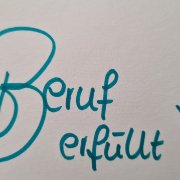 Beruf
erfüllt